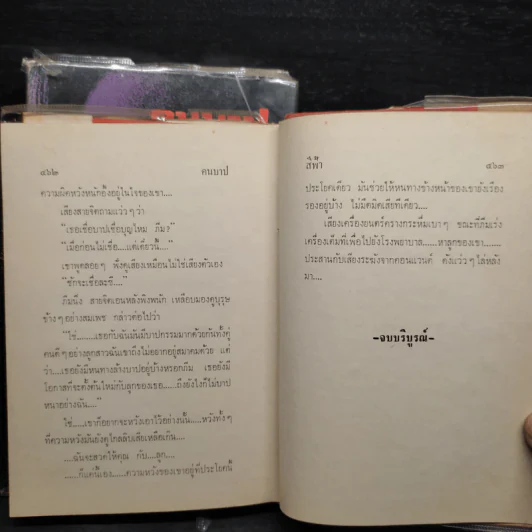 คนบาป
๔๖๒
คนบาป
ความผิดหวังหนักอึ้งอยู่ในใจของเขา....
เสียงสายจิตถามแว่ว ๆ ว่า
"เธอเชื่อบาปเชื่อบุญไหม ภีม?"
"เมื่อก่อนไม่เชื่อ....แต่เดี๋ยวนี้...."
เขาพูดลอย ๆ ฟังดูเสียงเหมือนไม่ใช่เสียงตัวเอง
"ชักจะเชื่อละซี...."
ภีมนิ่ง สายจิตเอนหลังพิงพนัก เหลือบมองดูบุรุษ
ข้าง ๆ อย่างสมเพช กล่าวต่อไปว่า
"ใช่......เธอกับฉันมันมีบาปกรรมมากด้วยกันทั้งคู่
คนดี ๆ อย่างลูกสาวฉันเขาถึงไม่อยากอยู่สมาคมด้วย แต่
ว่า....เธอยังมีหนทางล้างบาปอยู่บ้างหรอกภีม เธอยังมี
โอกาสที่จะตั้งต้นใหม่กับลูกของเธอ.....ถึงยังไงก็ไม่บาป
หนาอย่างฉัน...."
ใช่.....เขาก็อยากจะหวังเอาไว้อย่างนั้น.....หวังทั้ง ๆ
ที่ความหวังมันยังดูไกลลิบเสียเหลือเกิน....
....ฉันจะสวดให้คุณ กับ....ลูก....
.....ก็แค่นี้เอง......ความหวังของเขาอยู่ที่ประโยคนี้
สีฟ้า
๔๖๓
ประโยคเดียว มันช่วยให้หนทางข้างหน้าของเขายังเรือง
รองอยู่บ้าง ไม่มืดมิดเสียทีเดียว....
เสียงเครื่องยนตร์ครางกระหึ่มเบา ๆ ขณะที่ภีมเร่ง
เครื่องเต็มที่เพื่อไปยังโรงพยาบาล.......หาลูกของเขา.......
ประสานกับเสียงระฆังจากคอนแวนต์ ดังแว่ว ๆ ไล่หลัง
มา....
-จบบริบูรณ์-